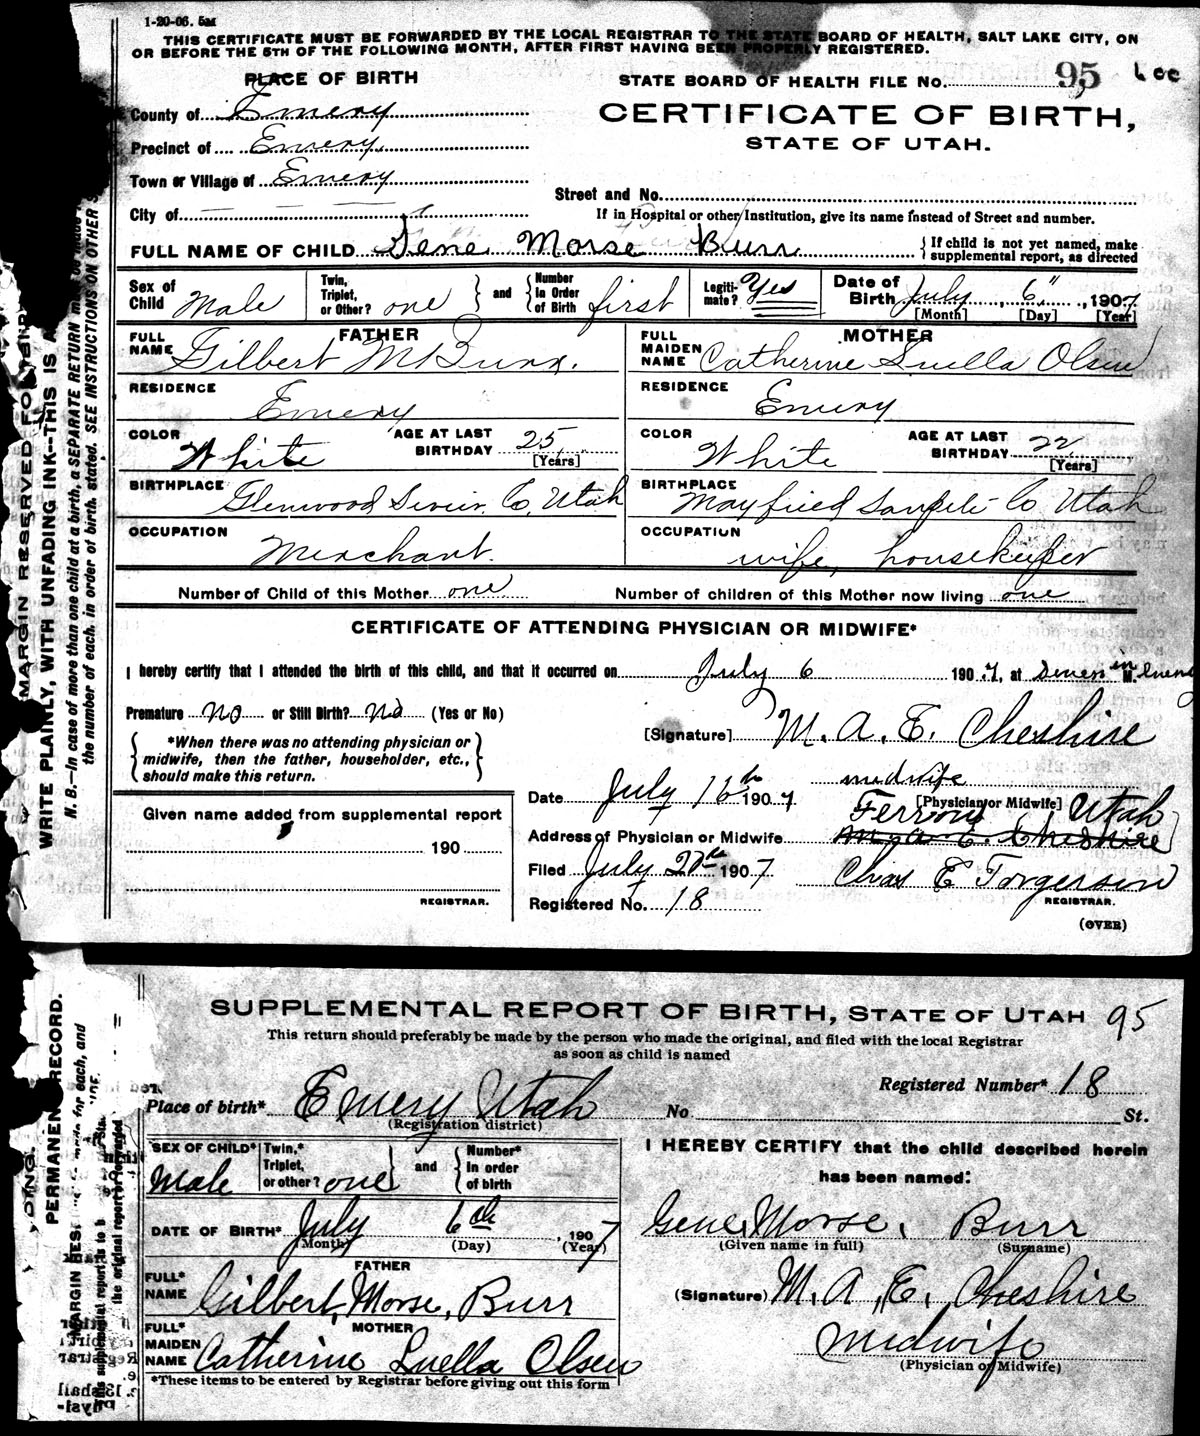 1-20-06. 5m
THIS CERTIFICATE MUST BE FORWARDED BY THE LOCAL REGISTRAR TO THE STATE BOARD OF HEALTH, SALT LAKE CITY, ON
OR BEFORE THE 5TH OF THE FOLLOWING MONTH, AFTER FIRST HAVING BEEN PROPERLY REGISTERED.
PLACE OF BIRTH
STATE BOARD OF HEALTH FILE No. 95
County of Emery
CERTIFICATE OF BIRTH,
Precinct of Emery
STATE OF UTAH.
Town or Village of Emery
Street and No.
City of
If in Hospital or other Institution, give its name instead of Street and number.
FULL NAME OF CHILD Gene Morse Burr { If child is not yet named, make supplemental report, as directed
Sex of Child Male Twin, Triplet, or Other? one } and { Number In Order of Birth first Legitimate? Yes Date of Birth July, 6", 1907
[Month] [Day] [Year]
FATHER MOTHER
FULL NAME Gilbert M Burr. FULL MAIDEN NAME Catherine Luella Olsen
RESIDENCE Emery RESIDENCE Emery
COLOR White AGE AT LAST BIRTHDAY 25 [Years] COLOR White AGE AT LAST BIRTHDAY 22 [Years]
BIRTHPLACE Glenwood Sevier Co, Utah BIRTHPLACE Mayfield Sanpete Co Utah
OCCUPATION Merchant. OCCUPATION wife, housekeeper
Number of Child of this Mother one Number of children of this Mother now living one
CERTIFICATE OF ATTENDING PHYSICIAN OR MIDWIFE*
I hereby certify that I attended the birth of this child, and that it occurred on July 6 1907, at M.
Premature No or Still Birth? No (Yes or No)
[Signature] M. A. E. Cheshire
{ *When there was no attending physician or midwife, then the father, householder, etc., should make this return. }
midwife
Date July 16th 1907 [Physician or Midwife]
Given name added from supplemental report
190
REGISTRAR.
Address of Physician or Midwife Ferron Utah
M. A. E. Cheshire
Filed July 20th 1907 Chas E Torgerson
Registered No. 18 REGISTRAR.
(OVER)
MARGIN RESERVED FOR
WRITE PLAINLY, WITH UNFADING INK--THIS IS A
N. B.—In case of more than one child at a birth, a SEPARATE RETURN
the number of each, in order of birth, stated. SEE INSTRUCTIONS ON OTHER
SUPPLEMENTAL REPORT OF BIRTH, STATE OF UTAH 95
This return should preferably be made by the person who made the original, and filed with the local Registrar
as soon as child is named
Registered Number* 18
Place of birth* Emery Utah No St.
(Registration district)
SEX OF CHILD* Male Twin,* Triplet, or other? one } and { Number* In order of birth
I HEREBY CERTIFY that the child described herein
has been named:
DATE OF BIRTH* July 6th, 1907
(Month) (Day) (Year)
Gene Morse, Burr
(Given name in full) (Surname)
FATHER
FULL* NAME Gilbert, Morse, Burr
(Signature) M. A, E. Cheshire
MOTHER
FULL* MAIDEN NAME Catherine Luella Olsen
midwife
(Physician of Midwife)
*These items to be entered by Registrar before giving out this form
PERMANENT RECORD.
for each, and